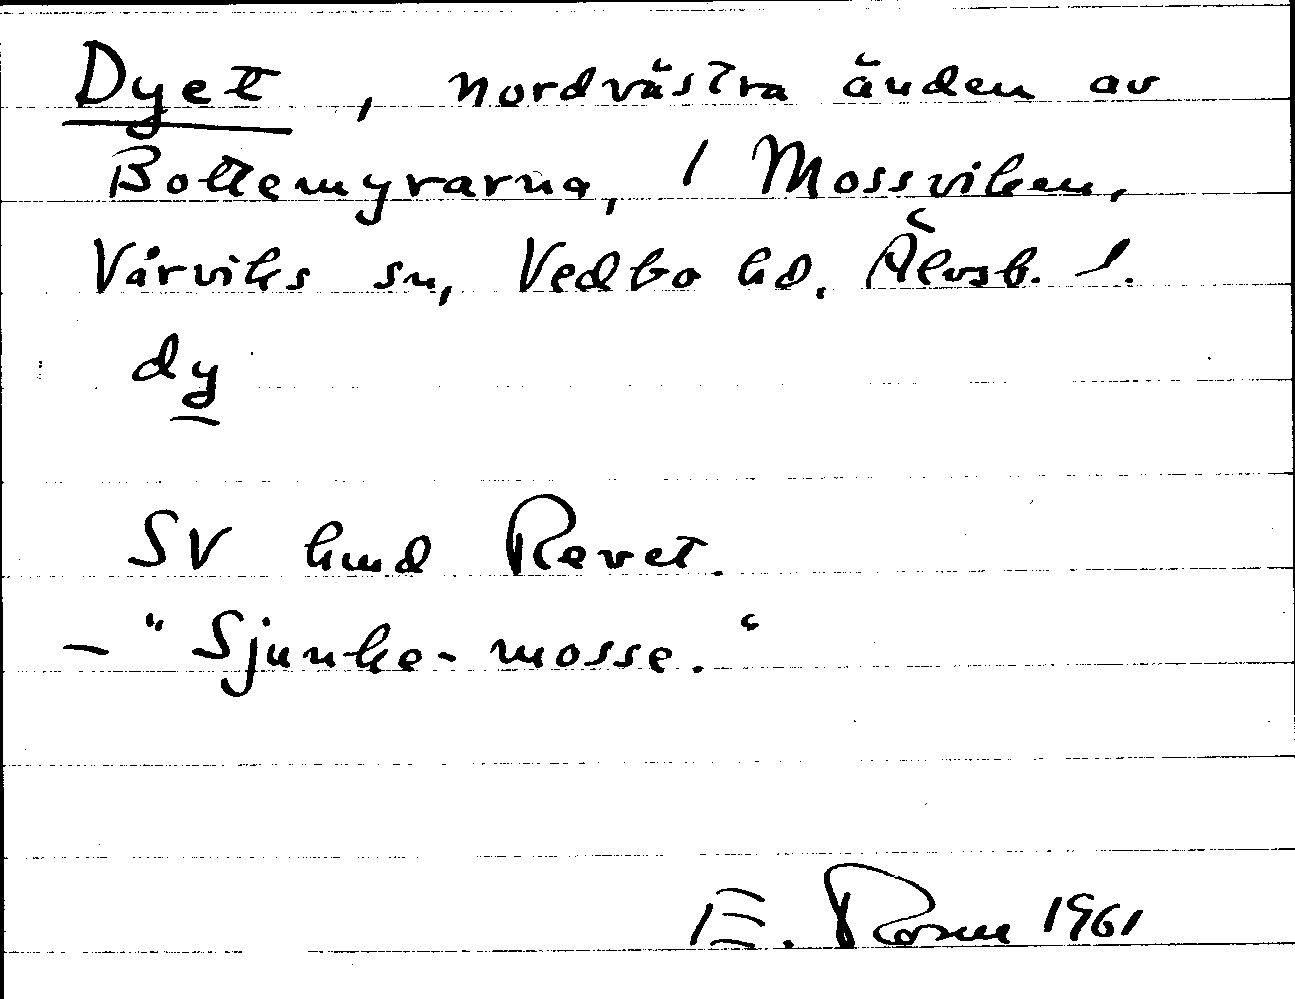 Dyet, nordvästra änden av
Bottemyrarna, / Mossviken,
Vårviks sn, Vedbo hd. Älvsb. l.
dy
SV Revet.
– "Sjunke-mosse."
E. 1961